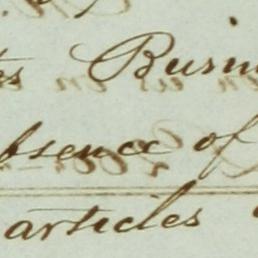 es Busin
bsence of
articles